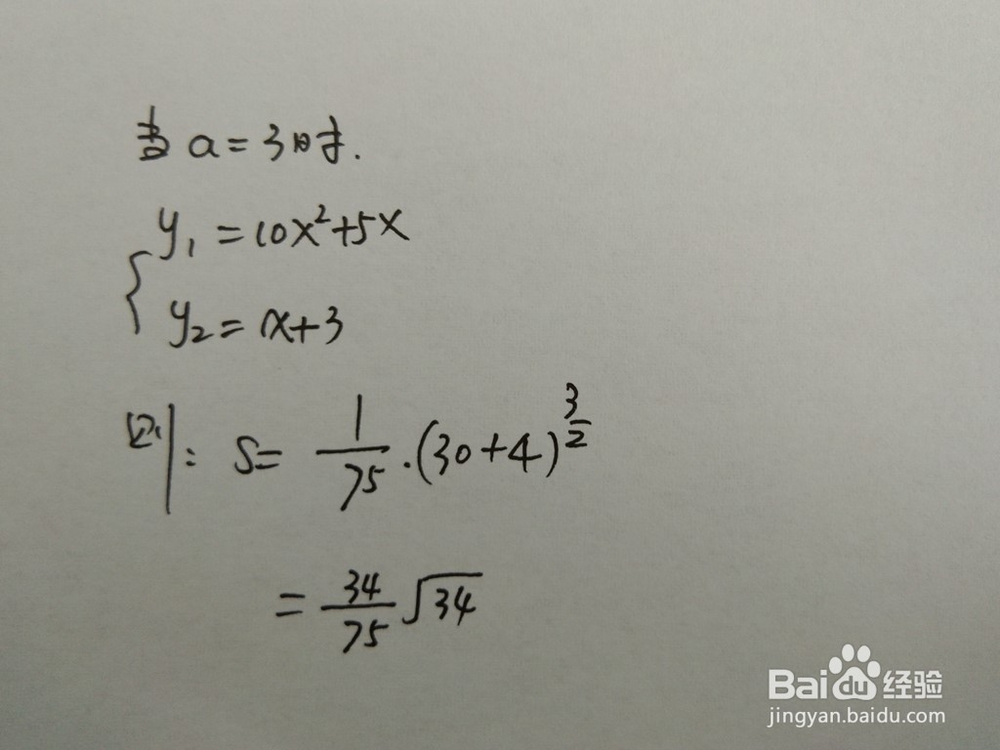 当a=3时.
y₁=10x²+5x
y₂=x+3
则: S= 1/75·(30+4)^(3/2)
= 34/75 √34
Baidu经验
jingyan.baidu.com